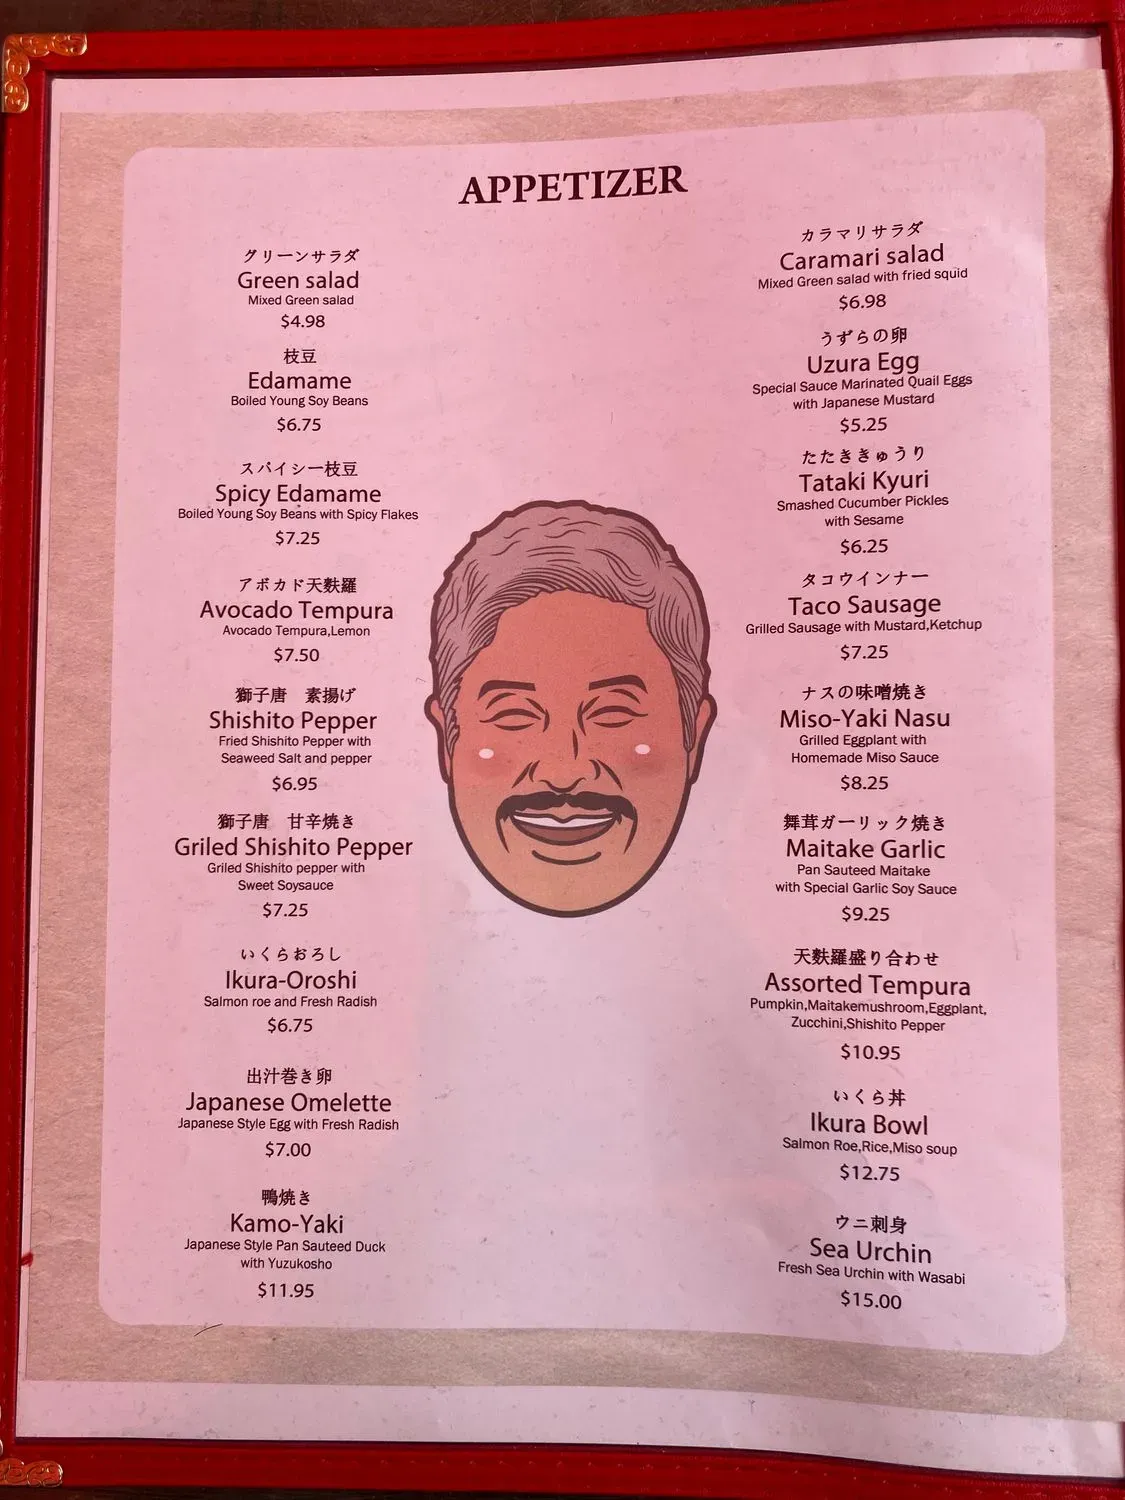 APPETIZER
グリーンサラダ
Green salad
Mixed Green salad
$4.98
枝豆
Edamame
Boiled Young Soy Beans
$6.75
スパイシー枝豆
Spicy Edamame
Boiled Young Soy Beans with Spicy Flakes
$7.25
アボカド天麩羅
Avocado Tempura
Avocado Tempura,Lemon
$7.50
獅子唐　素揚げ
Shishito Pepper
Fried Shishito Pepper with
Seaweed Salt and pepper
$6.95
獅子唐　甘辛焼き
Griled Shishito Pepper
Griled Shishito pepper with
Sweet Soysauce
$7.25
いくらおろし
Ikura-Oroshi
Salmon roe and Fresh Radish
$6.75
出汁巻き卵
Japanese Omelette
Japanese Style Egg with Fresh Radish
$7.00
鴨焼き
Kamo-Yaki
Japanese Style Pan Sauteed Duck
with Yuzukosho
$11.95
カラマリサラダ
Caramari salad
Mixed Green salad with fried squid
$6.98
うずらの卵
Uzura Egg
Special Sauce Marinated Quail Eggs
with Japanese Mustard
$5.25
たたききゅうり
Tataki Kyuri
Smashed Cucumber Pickles
with Sesame
$6.25
タコウインナー
Taco Sausage
Grilled Sausage with Mustard,Ketchup
$7.25
ナスの味噌焼き
Miso-Yaki Nasu
Grilled Eggplant with
Homemade Miso Sauce
$8.25
舞茸ガーリック焼き
Maitake Garlic
Pan Sauteed Maitake
with Special Garlic Soy Sauce
$9.25
天麩羅盛り合わせ
Assorted Tempura
Pumpkin,Maitakemushroom,Eggplant,
Zucchini,Shishito Pepper
$10.95
いくら丼
Ikura Bowl
Salmon Roe,Rice,Miso soup
$12.75
ウニ刺身
Sea Urchin
Fresh Sea Urchin with Wasabi
$15.00